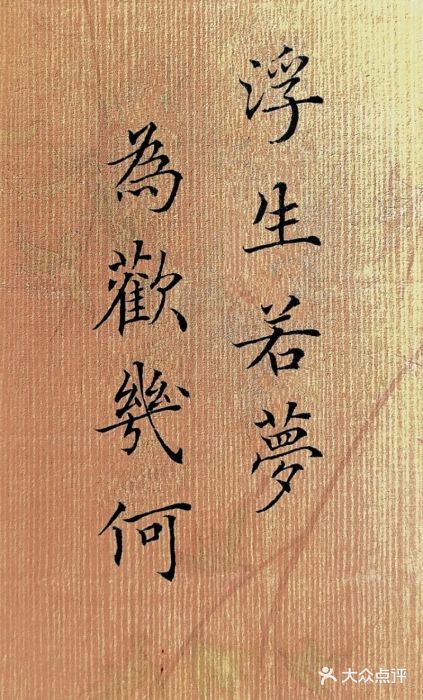 浮生若夢
為歡幾何
大众点评